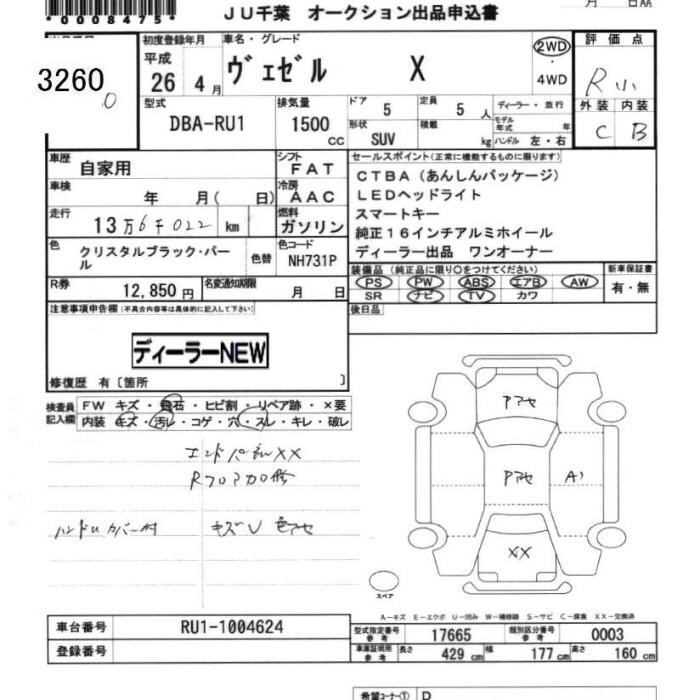 *0008475*
月 日AA
JU千葉 オークション出品申込書
3260
0
初度登録年月
平成
26 4月
車名・グレード
ヴェゼル X
2WD
・
4WD
評価点
R小
外装 内装
C B
型式
DBA-RU1
排気量
1500 cc
ドア 5
定員 5 人
形状 SUV
積載 kg
ディーラー・並行
モデル年式 年
ハンドル 左・右
車歴 自家用
シフト FAT
車検 年 月( 日)
冷房 AAC
走行 13万6千022 km
燃料 ガソリン
色 クリスタルブラック・パール
色替
色コード NH731P
R券 12,850円
名変通知期限 月 日
セールスポイント(正常に機能するものに限ります)
CTBA(あんしんパッケージ)
LEDヘッドライト
スマートキー
純正16インチアルミホイール
ディーラー出品 ワンオーナー
装備品(純正品に限り○をつけてください)
PS PW ABS エアB AW
SR ナビ TV カワ
新車保証書
有・無
後日品
注意事項申告欄(不具合内容等は具体的に記入して下さい)
ディーラーNEW
修復歴 有〔箇所 〕
検査員記入欄
FW キズ・飛石・ヒビ割・リペア跡・×要
内装 キズ・汚レ・コゲ・穴・スレ・キレ・破レ
エンドパネルXX
RフロアカロP修
ハンドルカバー付
キズU 色アセ
Pアセ
Pアセ
A1
XX
スペア
A-キズ E-エクボ U-凹み W-補修跡 S-サビ C-腐食 XX-交換済
車台番号 RU1-1004624
登録番号
型式指定番号 参考 17665
類別区分番号 参考 0003
車庫証明用 参考 長さ 429 cm 幅 177 cm 高さ 160 cm
希望コーナー① D